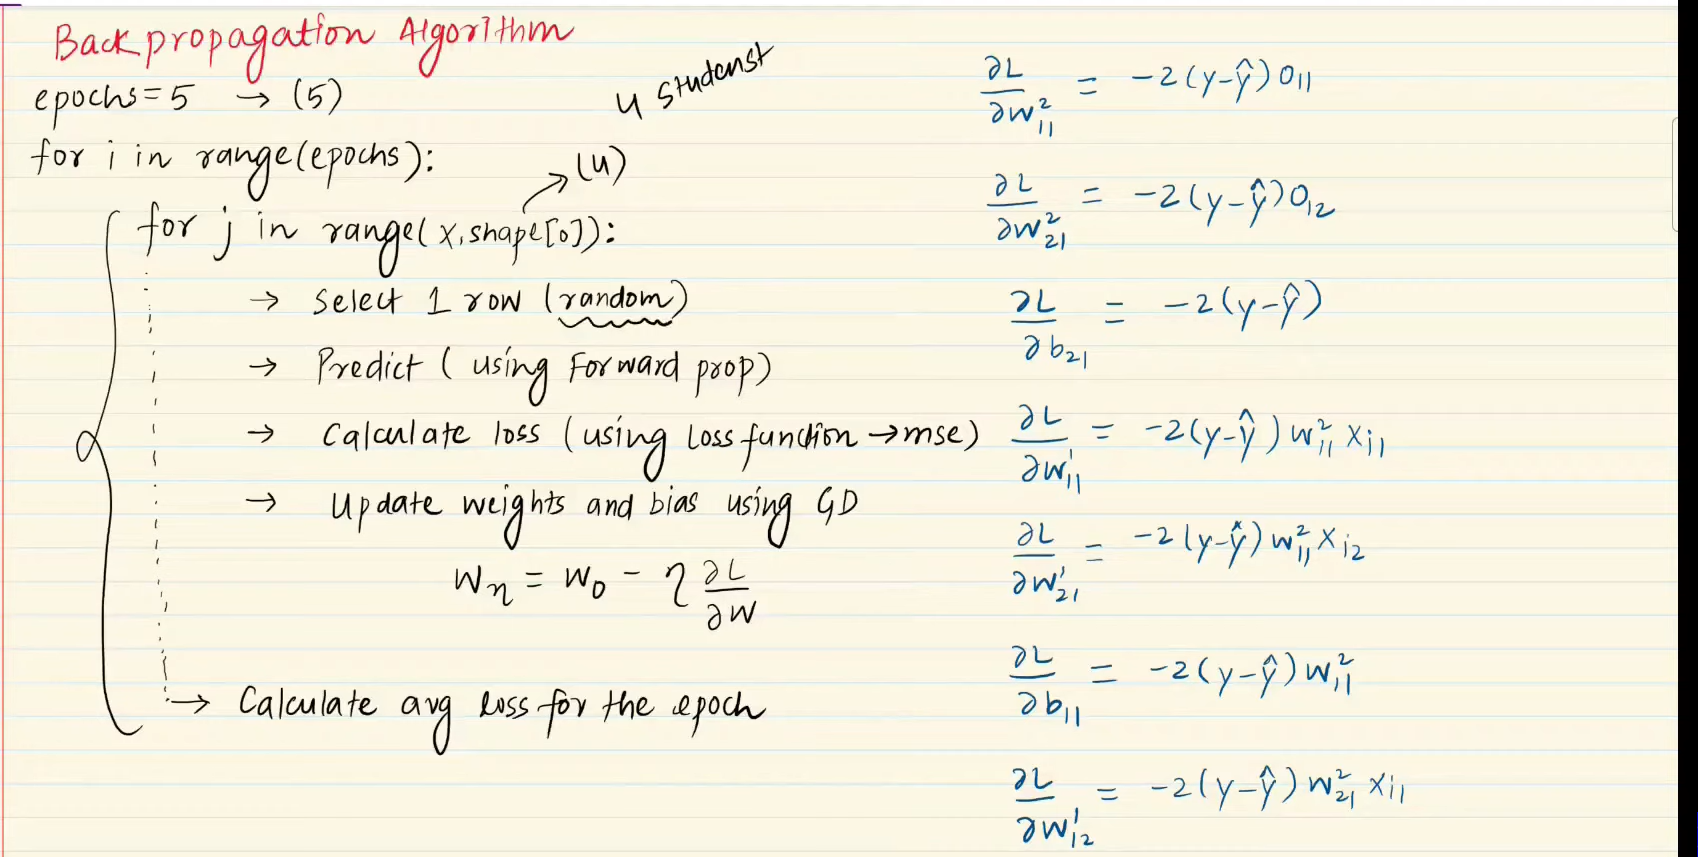 Backpropagation Algorithm
epochs=5 → (5)
4 studenst
for i in range(epochs):
→ (4)
for j in range(x.shape[0]):
→ Select 1 row (random)
→ Predict (using Forward prop)
→ Calculate loss (using loss function → mse)
→ Update weights and bias using GD
Wn = W₀ - η ∂L/∂W
→ Calculate avg loss for the epoch
∂L/∂W²₁₁ = -2(y-ŷ)O₁₁
∂L/∂W²₂₁ = -2(y-ŷ)O₁₂
∂L/∂b₂₁ = -2(y-ŷ)
∂L/∂W¹₁₁ = -2(y-ŷ)W²₁₁ Xi₁
∂L/∂W¹₂₁ = -2(y-ŷ)W²₁₁ Xi₂
∂L/∂b₁₁ = -2(y-ŷ)W²₁₁
∂L/∂W¹₁₂ = -2(y-ŷ)W²₂₁ Xi₁